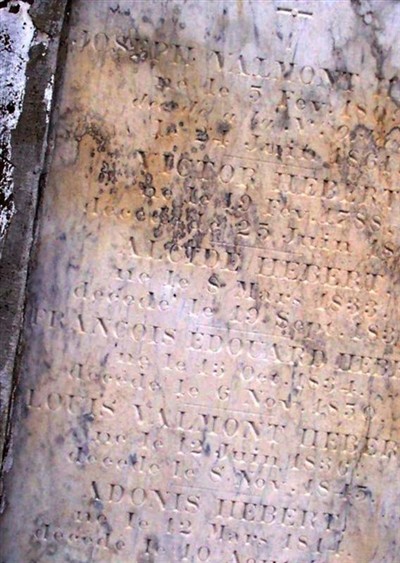 JOSEPH VALMONT
né le 5 Fev. 18
décédé à la N.
le 24 Juin 1861
VICTOR HEBERT
né le 19 Fev. 1788
décédé le 25 Juin 18
ALCIDE HEBERT
né le 8 Mars 1833
décédé le 19 Sept. 18
FRANÇOIS EDOUARD HEB
né le 13 Oct. 1834.
décédé le 6 Nov. 1850.
LOUIS VALMONT HEBER
né le 12 Juin 1836.
décédé le 8 Nov. 1843.
ADONIS HEBERT
né le 12 Mars 1844.
décédé le 10 Août